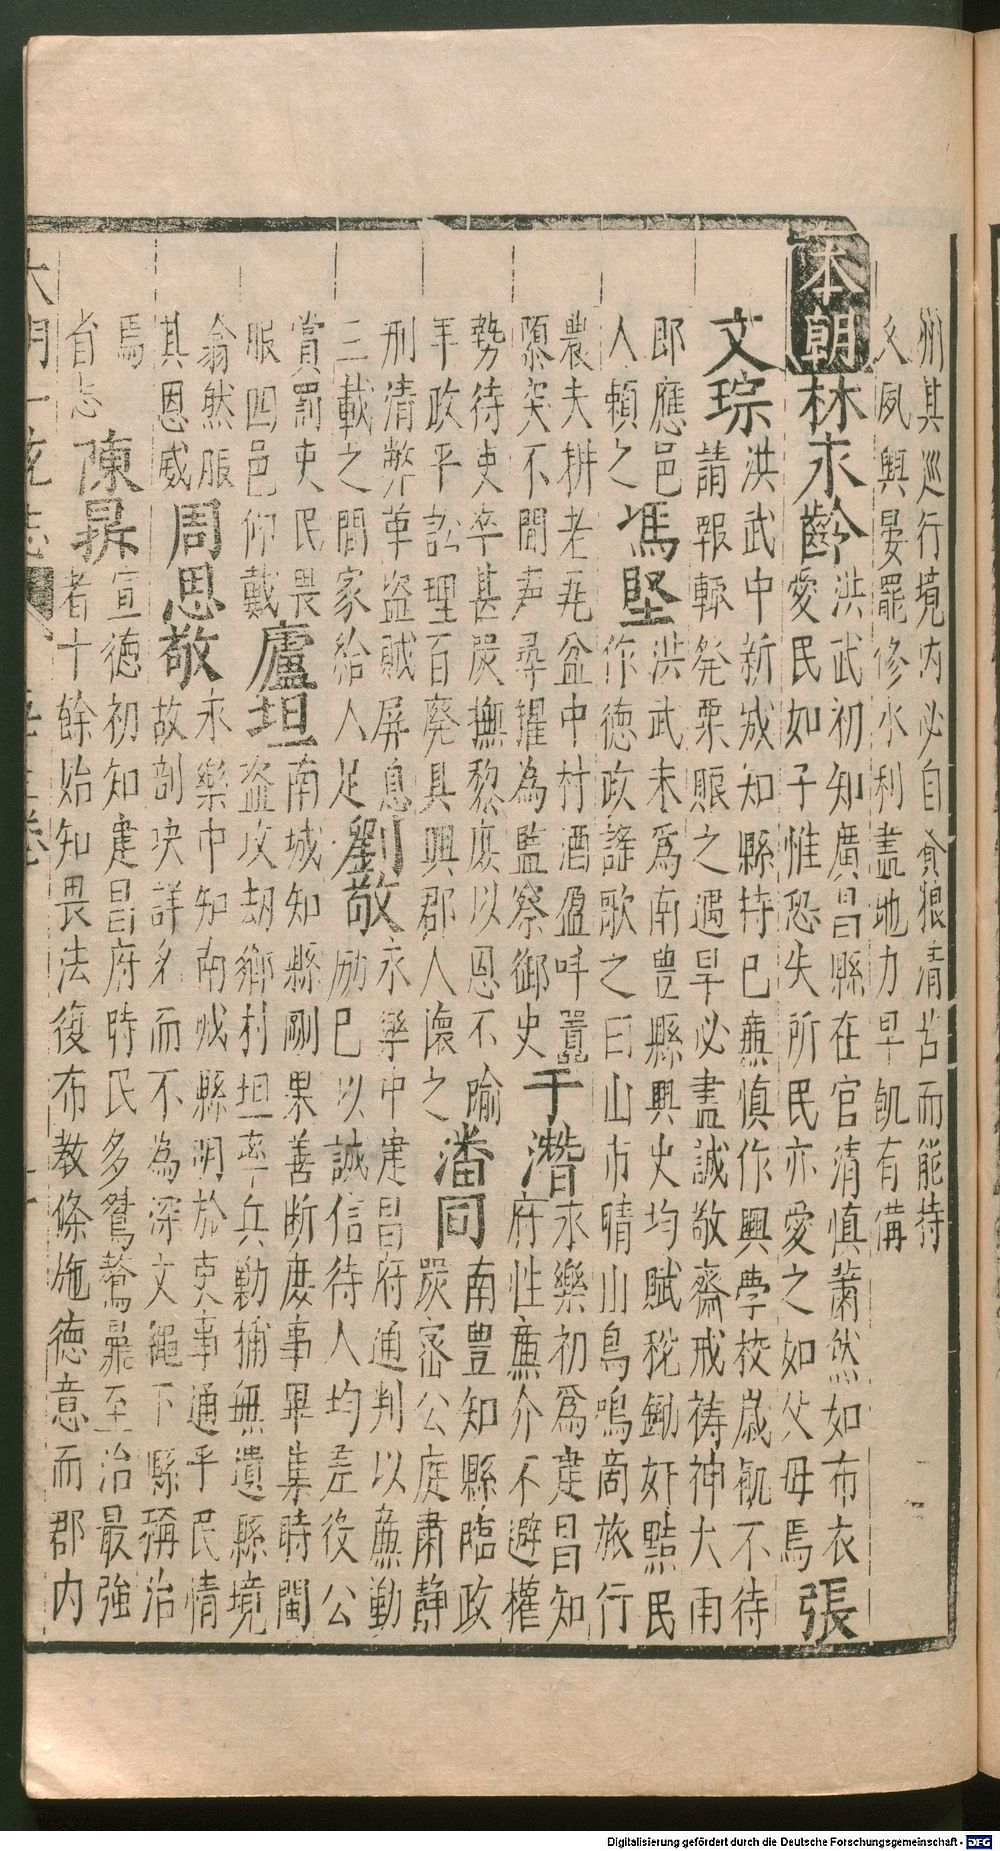 州其巡行境内必自貪狼清苦而能持
久夙興晏罷修水利盡地力旱飢有備
本朝
林永齡
洪武初知廣昌縣在官清慎蕭然如布衣
愛民如子惟恐失所民亦愛之如父母焉
張
文琮
洪武中新城知縣持已廉慎作興學校歲飢不待
請報輙発粟賑之遇旱必盡誠敬齋戒祷神大雨
郎應邑
人頼之
馮堅
洪武末爲南豊縣興史均賦稅鋤奸黠民
作徳政謡歌之曰山市晴山鳥鳴商旅行
農夫耕老瓦盆中村酒盈呼囂
隳突不聞声尋擢為監察御史
于潛
永樂初爲建昌知
府性廉介不避權
勢待吏卒甚嚴撫黎庶以恩不踰
年政平訟理百廢具興郡人懐之
潘同
南豊知縣臨政
嚴宻公庭肅静
刑清弊革盗賊屏息
三載之間家給人足
劉敬
永樂中建昌府通判以廉勤
励已以誠信待人均差役公
賞罰吏民畏
服四邑仰戴
廬坦
南城知縣剛果善断庻事畢集時閩
盗攻刼鄉村坦率兵勦捕無遺縣境
翕然服
其恩威
周思敬
永樂中知南城縣明於吏事通乎民情
故剖决詳多而不為深文繩下縣稱治
焉
省志
陳鼎
宣徳初知建昌府時民多鴛驁鼎至治最強
者十餘始知畏法復布教條施徳意而郡内
大明一
Digitalisierung gefördert durch die Deutsche Forschungsgemeinschaft - DFG